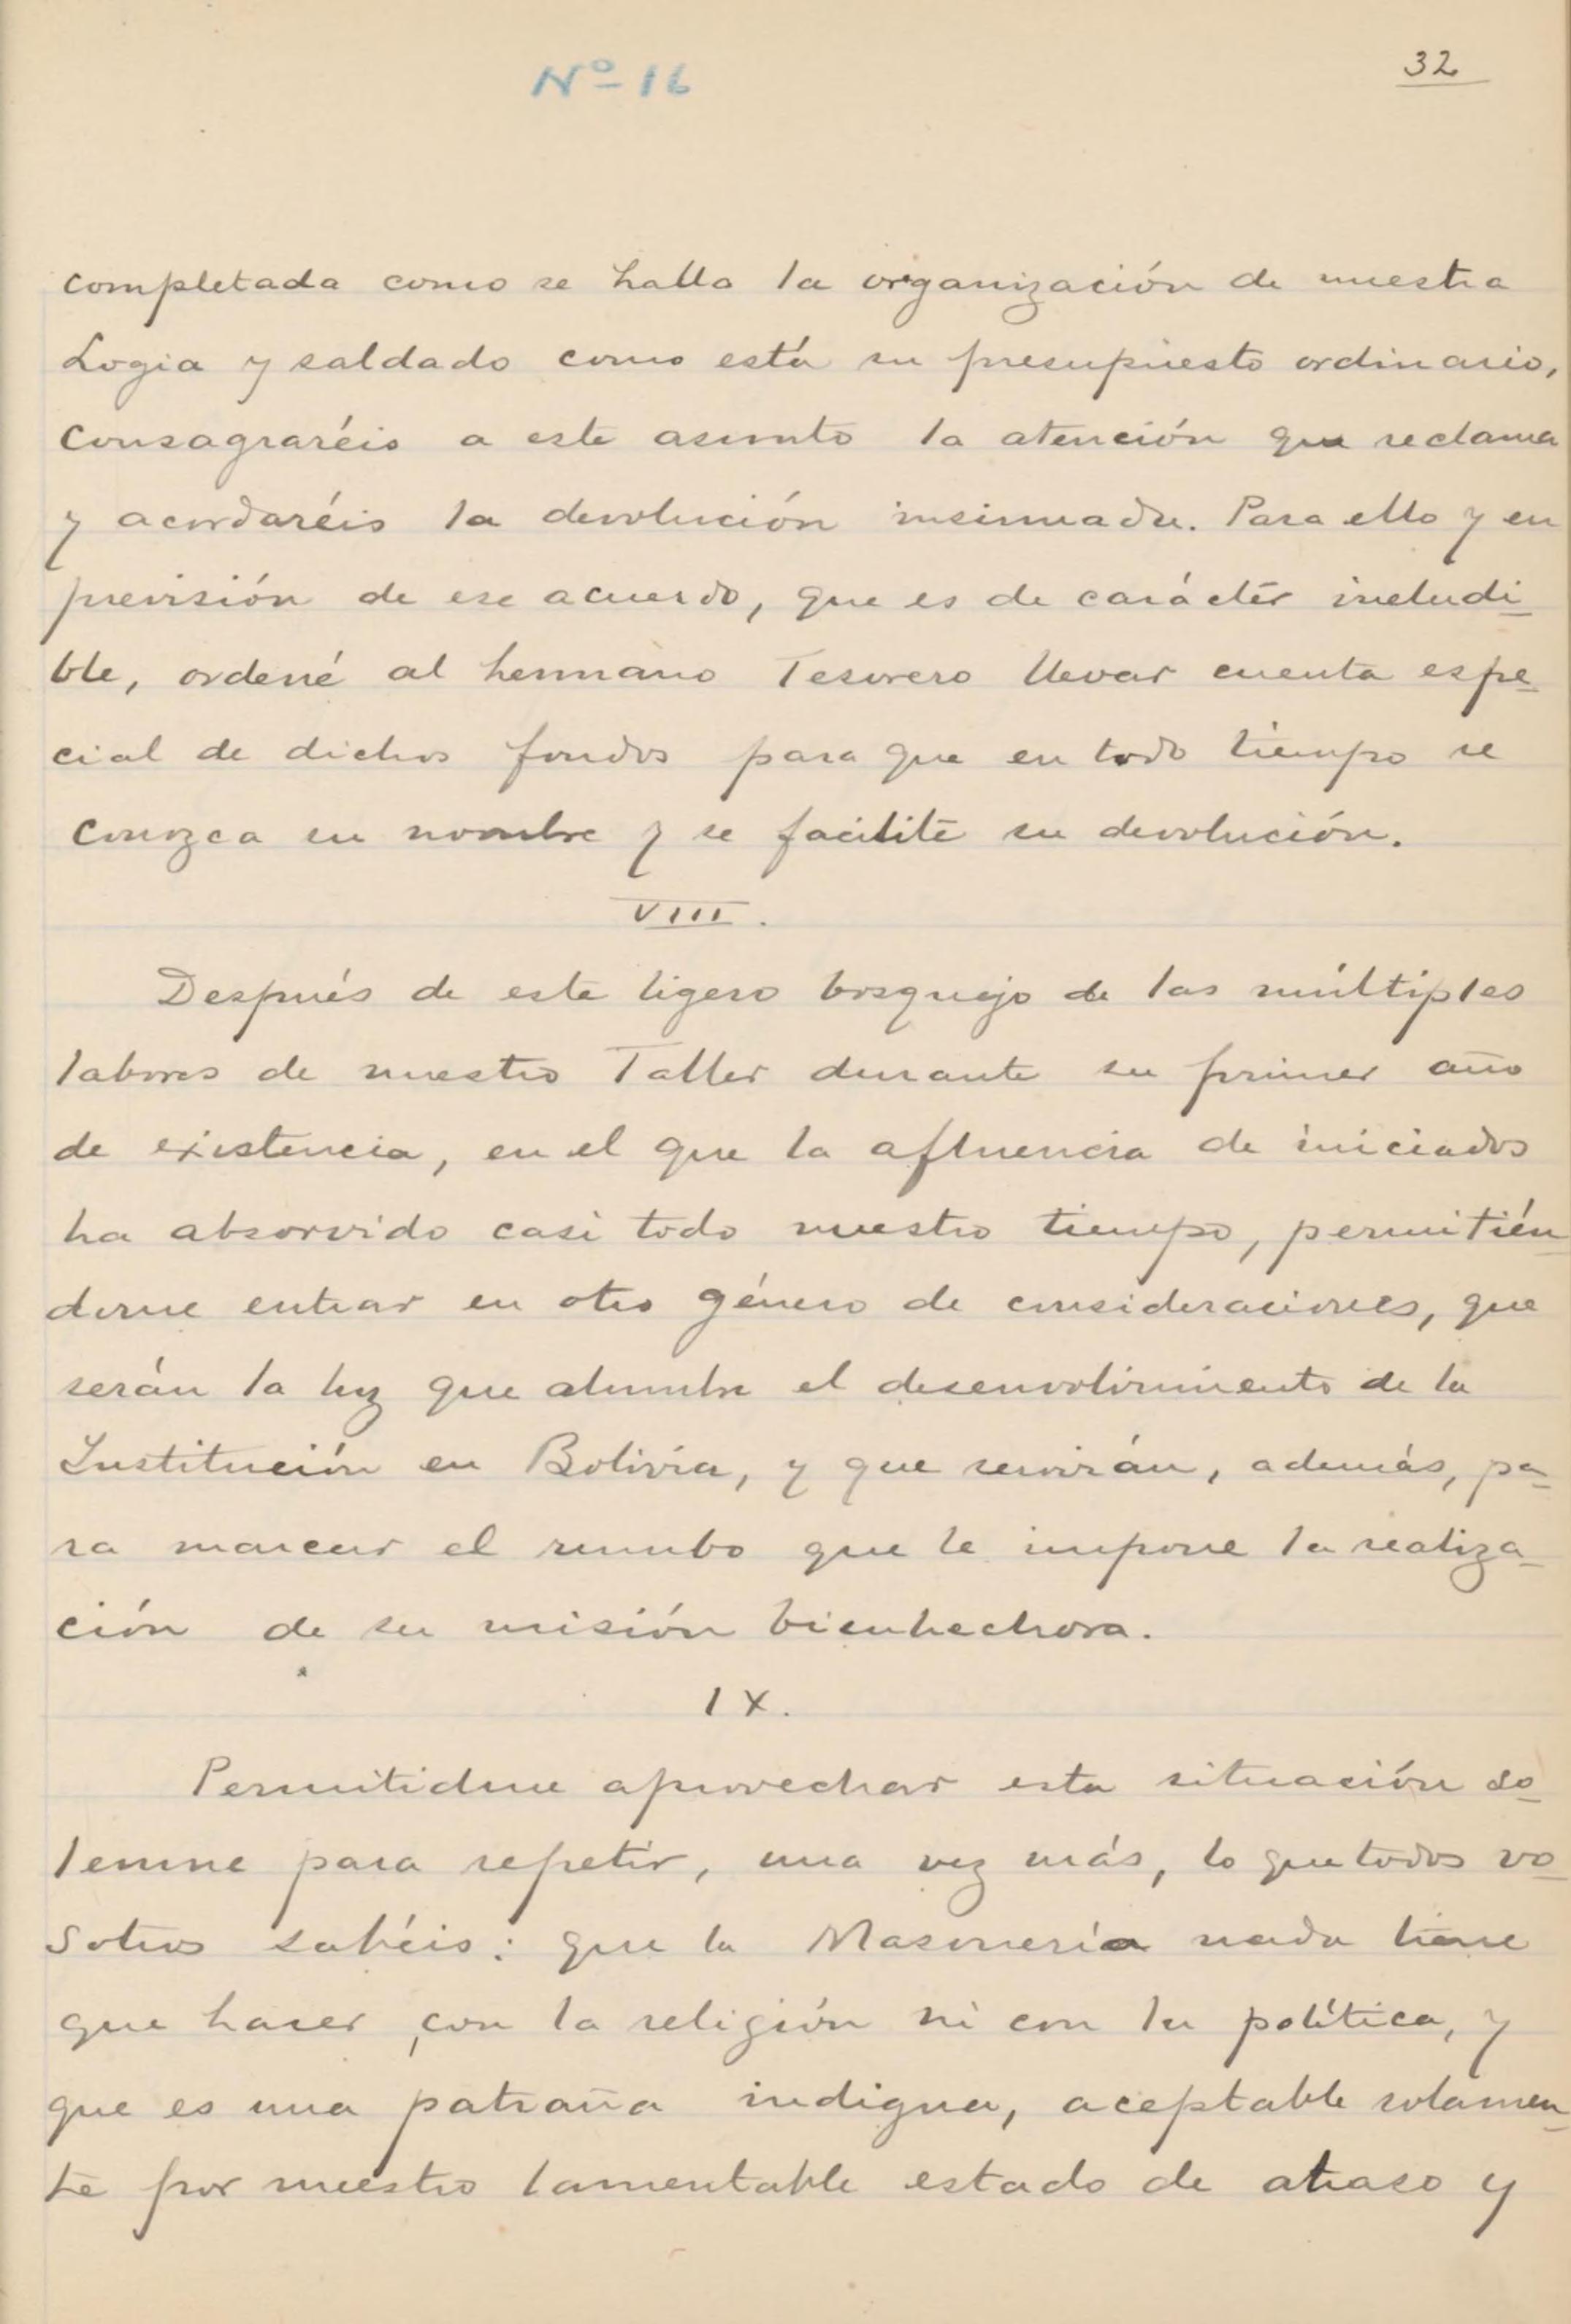 Nº 16
32
completada como se halla la organización de nuestra
Logia y saldado como está su presupuesto ordinario,
consagraréis a este asunto la atención que reclama
y acordaréis la devolución insinuada. Para ello y en
previsión de ese acuerdo, que es de carácter ineludi-
ble, ordené al hermano Tesorero llevar cuenta espe-
cial de dichos fondos para que en todo tiempo se
conozca su nombre y se facilite su devolución.
VIII.
Después de este ligero bosquejo de las múltiples
labores de nuestro Taller durante su primer año
de existencia, en el que la afluencia de iniciados
ha absorvido casi todo nuestro tiempo, permitién-
dome entrar en otro género de consideraciones, que
serán la luz que alumbre el desenvolvimiento de la
Institución en Bolivia, y que servirán, además, pa-
ra marcar el rumbo que le impone la realiza-
ción de su misión bienhechora.
IX.
Permitidme aprovechar esta situación so-
lemne para repetir, una vez más, lo que todos vo-
sotros sabéis: que la Masonería nada tiene
que hacer con la religión ni con la política, y
que es una patraña indigna, aceptable solamen-
te por nuestro lamentable estado de atraso y